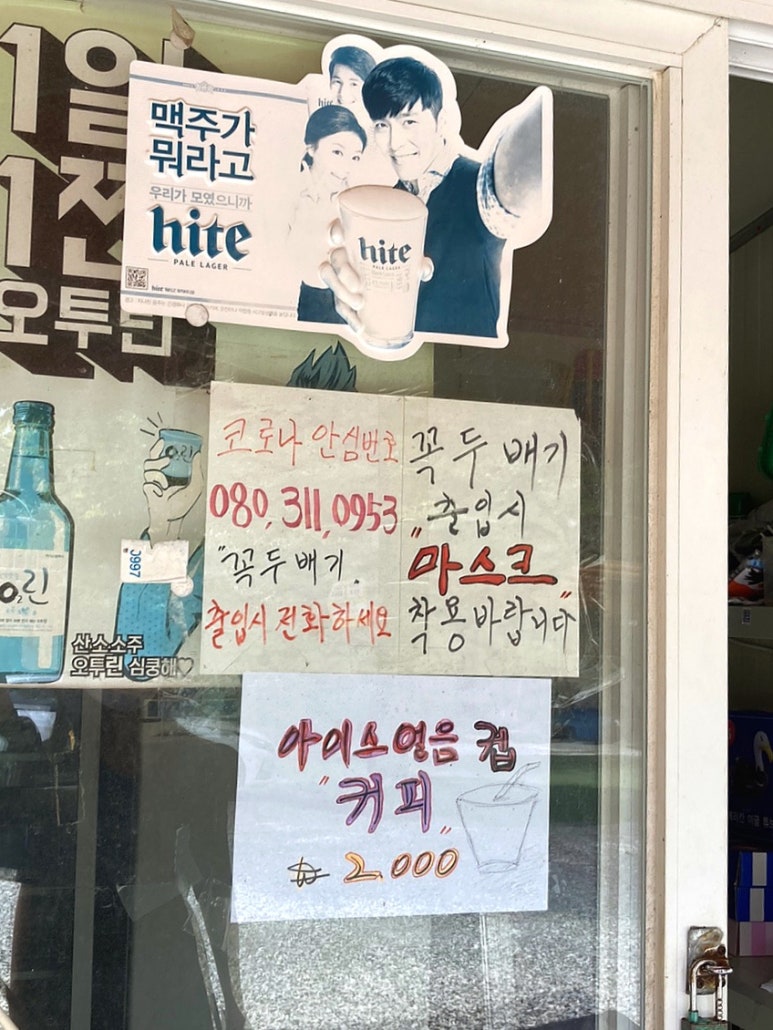 1일
1잔
오투린
맥주가
뭐라고
우리가 모였으니까
hite
PALE LAGER
hite
PALE LAGER
코로나 안심번호
080.311.0953
"꼭두배기.
출입시 전화하세요
꼭두배기
"출입시
마스크"
착용바랍니다
O₂린
린
0997
산소소주
오투린 심쿵해♡
아이스얼음 컵
"커피"
₩ 2.000